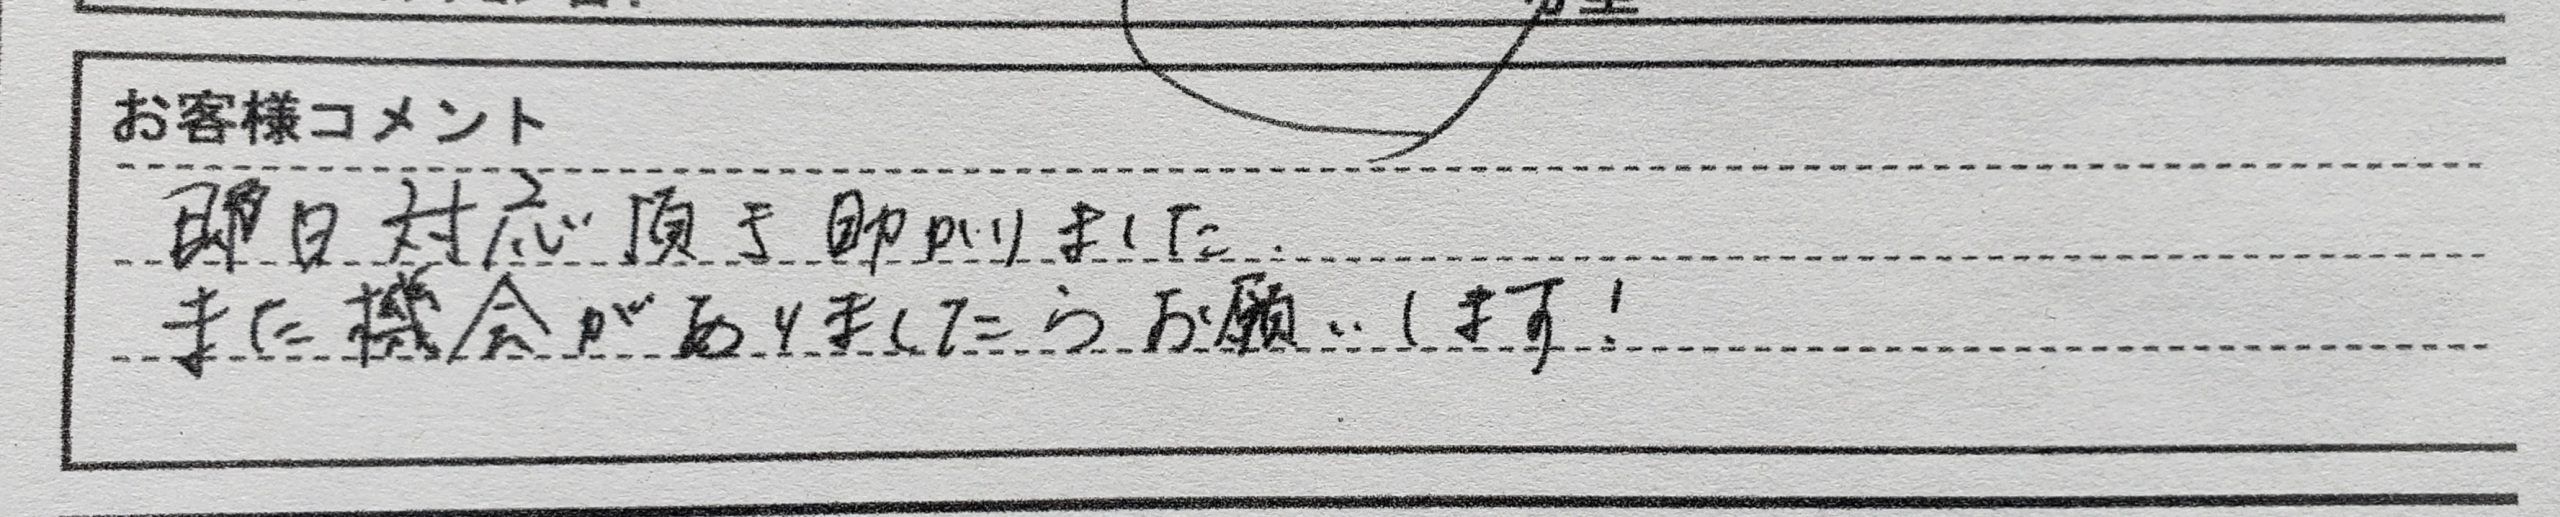 お客様コメント
即日対応頂き助かりました.
また機会がありましたらお願いします!